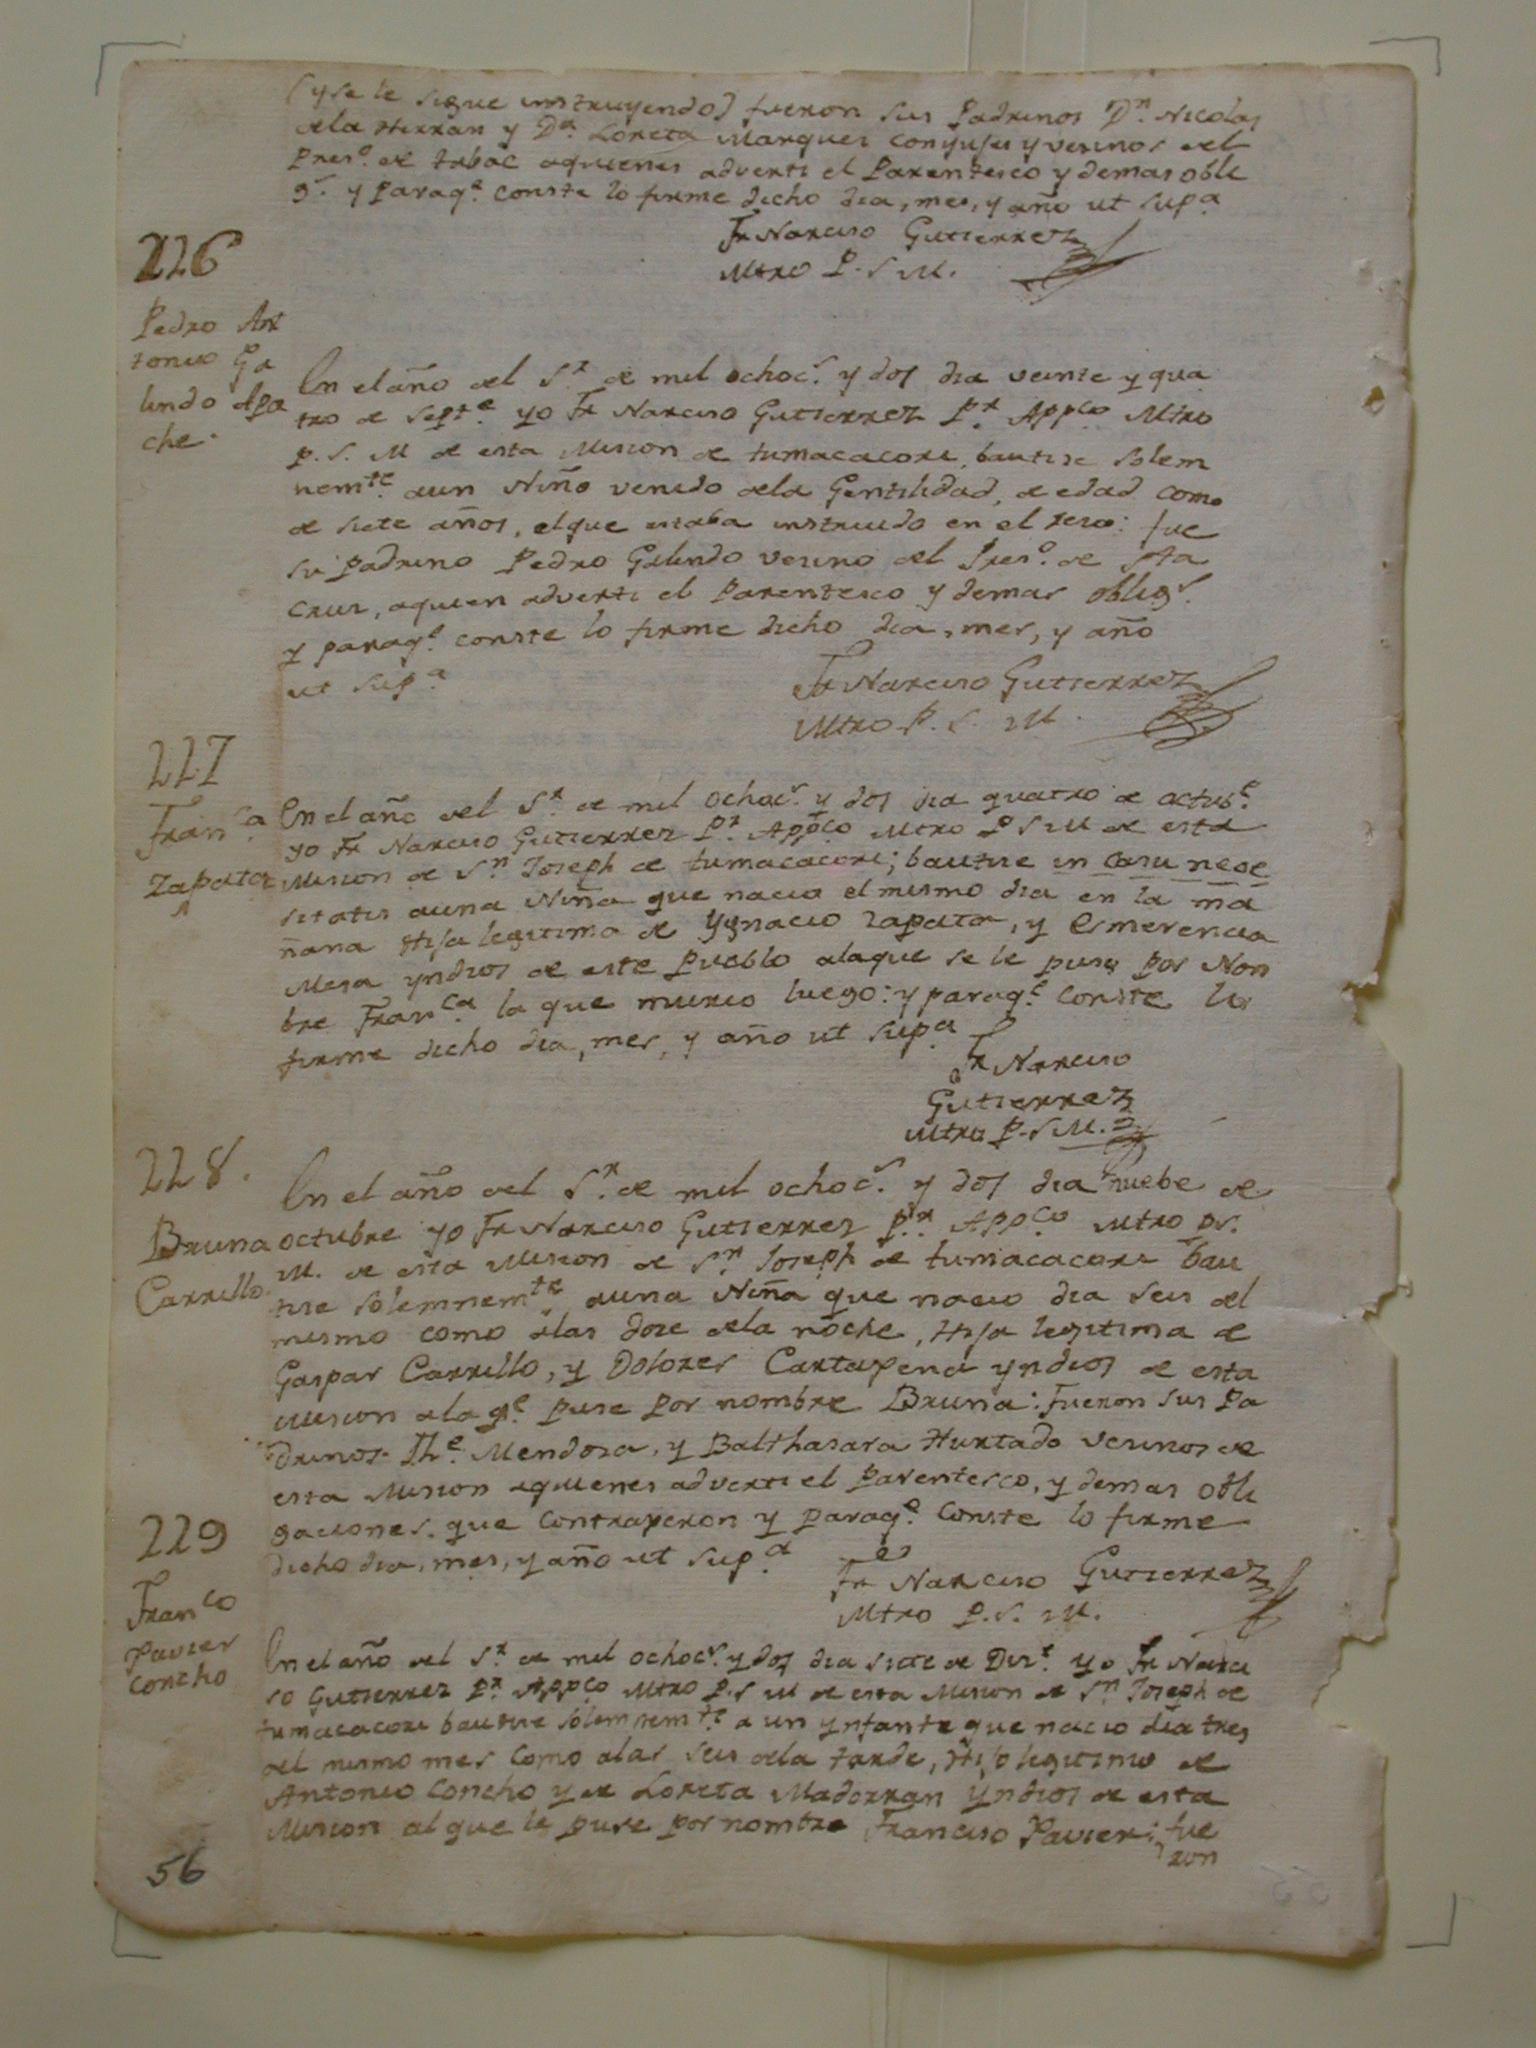 (y se le sigue instruyendo) fueron sus Padrinos Dn. Nicolas
dela Herran y Da. Loreta Marques conyuges y vecinos del
Preso. de tubac aquienes adverti el Parentesco y demas obli
gs. y paraqe. conste lo firme dicho dia, mes, y año ut supa.
Fr Narciso Gutierrez
Mtro P. S M.
226
Pedro An
tonio Ga
lindo Apa
che.
En el año del Sr. de mil ochocs. y dos dia veinte y qua
tro de Septe. yo Fr Narciso Gutierrez Pr. Appco Mtro
P. S. M de esta Mision de tumacacori, bautise solem
nemte. aun Niño venido dela Gentilidad, de edad como
de siete años, elque estaba instruido en el reso: fue
su padrino Pedro Galindo vecino del Preso. de Sta
Cruz, aquien adverti el Parentesco y demas obligs.
y paraqe. conste lo firme dicho dia, mes, y año
ut supa.
Fr Narciso Gutierrez
Mtro P. S. M.
227
Franca.
Zapata
En el año del Sr. de mil ochocs. y dos dia quatro de octube.
yo Fr Narciso Gutierrez Pr. Appco Mtro P S M de esta
Mision de Sn Joseph de tumacacori; bautise in casu nece
sitatis auna Niña que nacio el mismo dia en la ma
ñana Hija legitima de Ygnacio Zapata, y Esmerencia
Mesa yndios de este Pueblo alaque se le puso por Non
bre Franca. la que murio luego: y paraqe. conste lo
firme dicho dia, mes, y año ut supa
Fr Narciso
Gutierrez
Mtro P. S M.
228.
Bruna
Carrillo.
En el año del Sr. de mil ochocs. y dos dia nuebe de
octubre yo Fr Narciso Gutierrez Pr. Appco Mtro PS.
M. de esta Mision de Sn Joseph de tumacacori bau
tise solemnemte. auna Niña que nacio dia seis del
mismo como alas doze dela noche, Hija legitima de
Gaspar Carrillo, y Dolores Cartaxena yndios de esta
Mision alaqe. puse por nombre Bruna: fueron sus Pa
drinos Jhe. Mendosa, y Balthasara Hurtado vecinos de
esta Mision aquienes adverti el parentesco, y demas obli
gaciones. que contraxeron y paraqe. conste lo firme
dicho dia, mes, y año ut supa.
Fr Narciso Gutierrez
Mtro P. S. M.
229
Franco
Xavier
Concho
En el año del Sr. de mil ochocs. y dos dia siete de Dize. yo Fr Narci
so Gutierrez Pr. Appco Mtro P. S M de esta Mision de Sn Joseph de
tumacacori bautise solemnemte. a un ynfante que nacio dia tres
del mismo mes como alas seis dela tarde, Hijo legitimo de
Antonio Concho y de Loreta Madorran Yndios de esta
Mision al que le puse por nombre Francisco Xavier; fue
ron
56